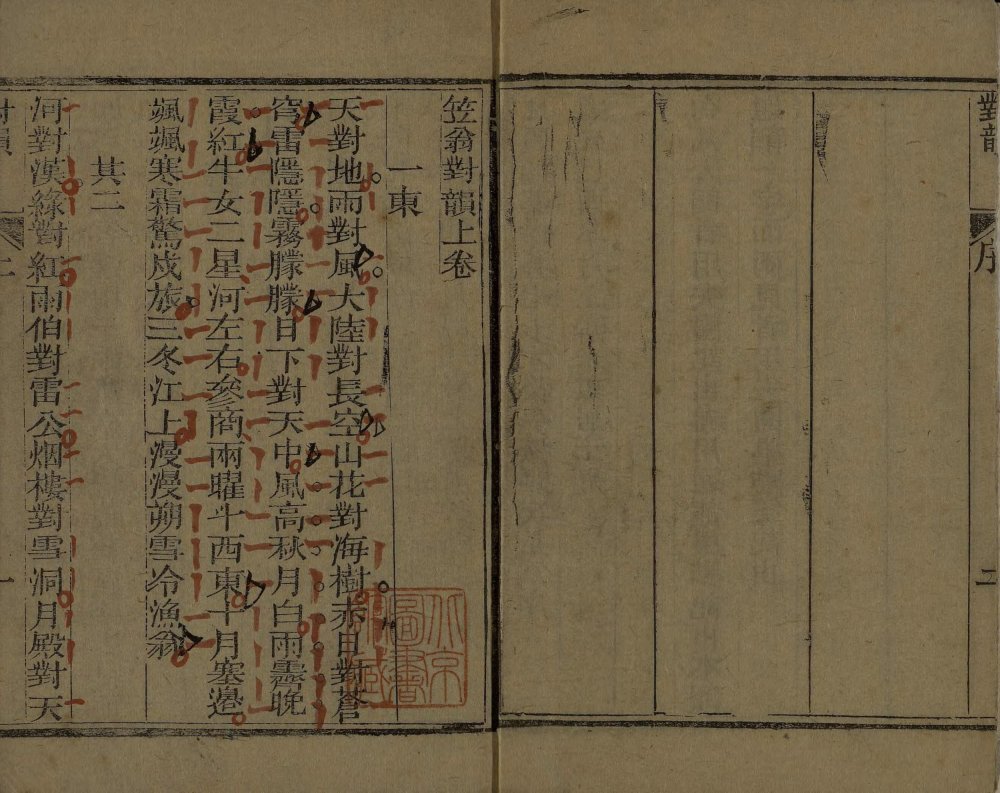 對韻
序
二
笠翁對韻上卷
一東
天對地雨對風大陸對長空山花對海樹赤日對蒼
穹雷隱隱霧朦朦日下對天中風高秋月白雨霽晚
霞紅牛女二星河左右參商兩曜斗西東十月塞邉
颯颯寒霜驚戍旅三冬江上漫漫朔雪冷漁翁
其二
河對漢綠對紅雨伯對雷公烟樓對雪洞月殿對天
對韻
上
一